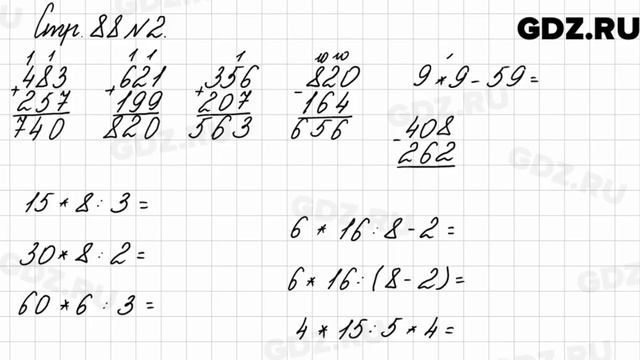 Стр. 88 №2.
GDZ.RU
1 1
483
+
257
740
1 1
621
+
199
820
1
356
+
207
563
10 10
820
-
164
656
9 * 9 - 59 =
408
-
262
15 * 8 : 3 =
30 * 8 : 2 =
60 * 6 : 3 =
6 * 16 : 8 - 2 =
6 * 16 : (8 - 2) =
4 * 15 : 5 * 4 =